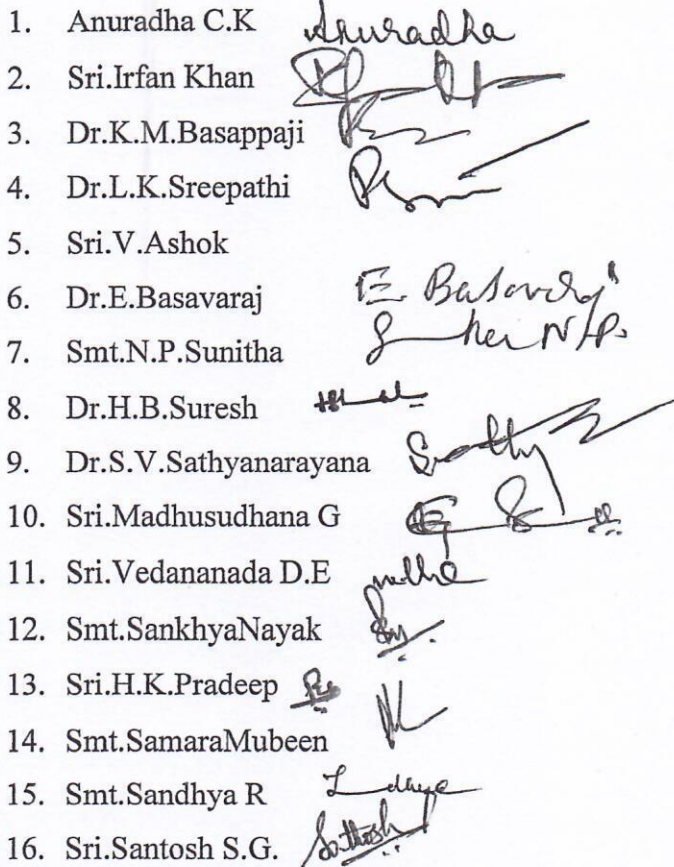 1. Anuradha C.K Anuradha
2. Sri.Irfan Khan
3. Dr.K.M.Basappaji
4. Dr.L.K.Sreepathi
5. Sri.V.Ashok
6. Dr.E.Basavaraj E Basavaraj
7. Smt.N.P.Sunitha
8. Dr.H.B.Suresh
9. Dr.S.V.Sathyanarayana
10. Sri.Madhusudhana G
11. Sri.Vedananada D.E
12. Smt.SankhyaNayak
13. Sri.H.K.Pradeep
14. Smt.SamaraMubeen
15. Smt.Sandhya R
16. Sri.Santosh S.G. Santhosh